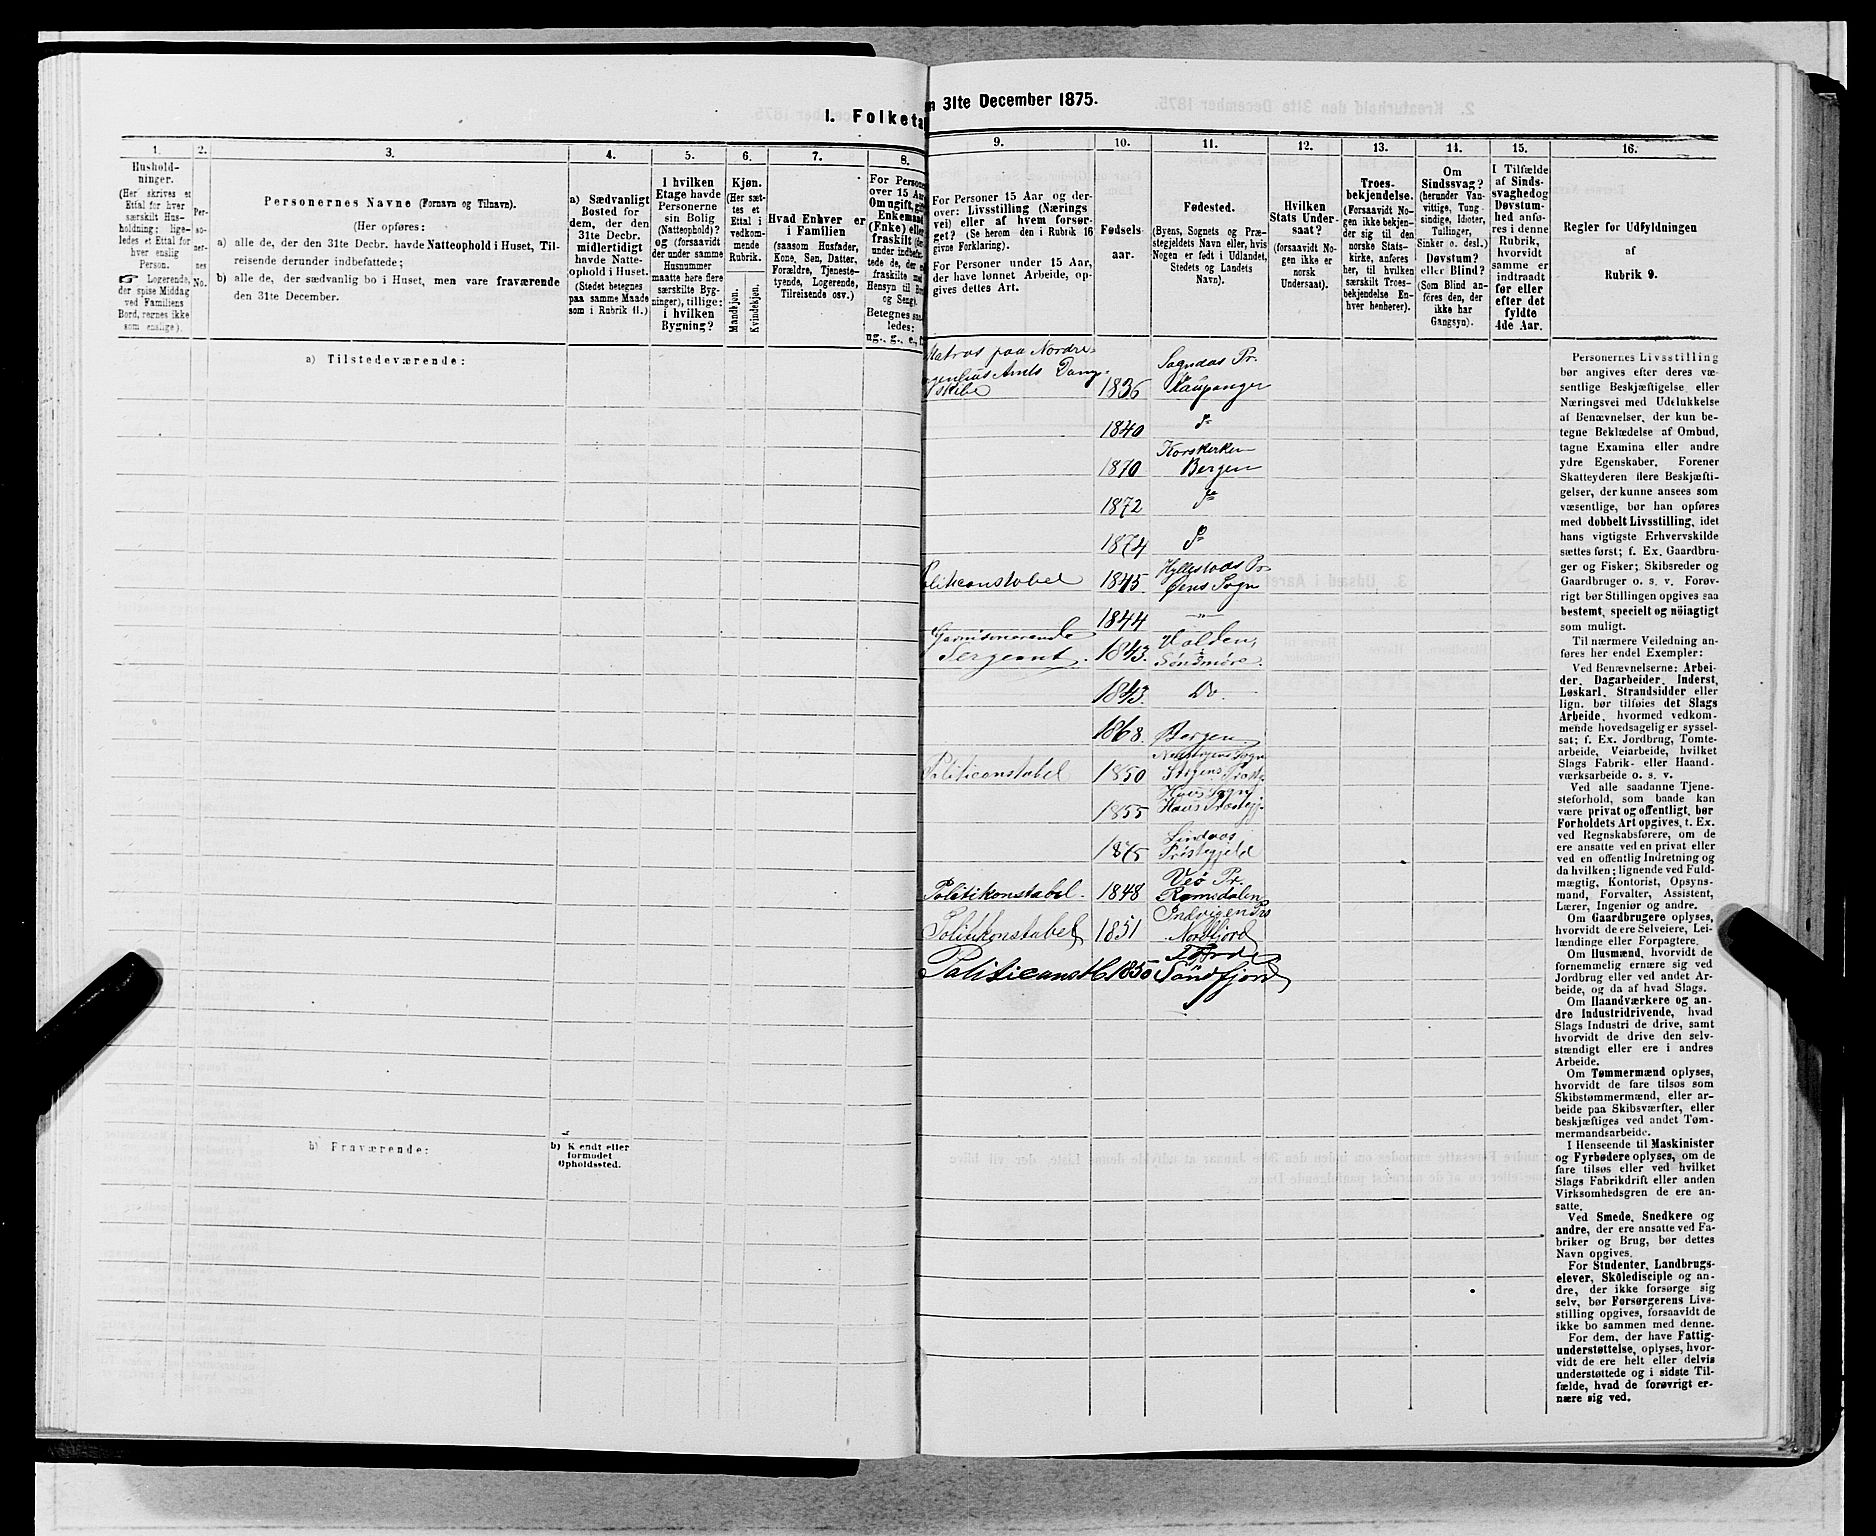 I. Folketa
m 31te December 1875.
1.
2.
3.
4.
5.
6.
7.
8.
Hushold-
ninger.
(Her skrives et
Ettal for hver
særskilt Hus-
holdning; lige-
ledes et Ettal for
hver enslig
Person.
☞ Logerende,
der spise Middag
ved Familiens
Bord, regnes ikke
som enslige).
Per-
so-
ner-
nes
No.
Personernes Navne (Fornavn og Tilnavn).
(Her opføres:
a) alle de, der den 31te Decbr. havde Natteophold i Huset, Til-
reisende derunder indbefattede;
b) alle de, der sædvanlig bo i Huset, men vare fraværende
den 31te December.
a) Sædvanligt
Bosted for
dem, der den
31te Decbr.
midlertidigt
havde Natte-
ophold i Huset.
(Stedet betegnes
paa samme Maade
som i Rubrik 11.)
I hvilken
Etage havde
Personerne
sin Bolig
(Natteophold)?
og (forsaavidt
der under samme
Husnummer
maatte høre flere
særskilte Byg-
ninger), tillige:
i hvilken
Bygning?
Kjøn.
(Her sæt-
tes et
Ettal i
vedkom-
mende
Rubrik.
Mandkjøn.
Kvindekjøn.
Hvad Enhver er
i Familien
(saasom Husfader,
Kone, Søn, Datter,
Forældre, Tjeneste-
tyende, Logerende,
Tilreisende osv.)
For Person
over 15 Aar
Om ugift, gift
Enkemand
(Fnke) eller
fraskilt (der
under indbefat-
tede de, der e
fraskilte med
Hensyn til Bor
og Seng).
Betegnes saa
ledes:
ug., g., e., f.
a) Tilstedeværende:
b) Fraværende:
b) Kjendt eller
formodet
Opholdssted.
9.
10.
11.
12.
13.
14.
15.
16.
For Personer 15 Aar og der-
over: Livsstilling (Nærings
vei) eller af hvem forsør-
get? (Se herom den i Rubrik 16
givne Forklaring).
For Personer under 15 Aar,
der have lønnet Arbeide, op-
gives dettes Art.
Fødsels
aar.
Fødested.
(Byens, Sognets og Præ-
stegjeldets Navn eller, hvis
Nogen er født i Udlandet,
Stedets og Landets
Navn).
Hvilken
Stats Under-
saat?
(forsaavidt No-
gen ikke er
norsk
Undersaat).
Troes-
bekjendelse.
(Forsaavidt No-
gen ikke bekjen-
der sig til den
norske Stats-
kirke, anføres
her, til hvilken
særskilt Troes-
bekjendelse En-
hver henhører).
Om
Sindssvag?
(herunder Van-
vittige, Tung-
sindige, Idioter,
Tullinger,
Sinker o. desl.)
Døvstum?
eller Blind?
(Som Blind an-
føres den, der
ikke har
Gangsyn).
I Tilfælde
af Sinds-
svaghed og
Døvstum-
hed anfø-
res i denne
Rubrik,
hvorvidt
samme er
indtraadt
før eller
efter det
fyldte
4de Aar.
Regler for Udfyldningen
af
Rubrik 9.
Matros paa Nordre
Bergenhus Amts Damp
skibe
1836
Sogndas Pr.
Kaupanger
1840
do
1870
Korskirken
Bergen
1872
do
1874
do
Politiconstabel
1845
Hyllestads Pr
Øens Sogn
1844
—"—
Garnisonerende
Sergeant.
1843.
Volden,
Söndmöre.
1843.
Do.
1868.
Bergen
Politiconstabel
1850
1855
Haus Sogn
Haus Præstegj.
1875
Lindaas
Præstegjeld
Politikonstabel.
1848
Veö Pr.
Romsdalen
Politikonstabel
1851
Indvigen Prs
Nordfjord
Politiconstb
1850
Förde
Söndfjord
Personernes Livsstilling
bør angives efter deres væ-
sentlige Beskjæftigelse eller
Næringsvei med Udelukkelse
af Benævnelser, der kun be-
tegne Beklædelse af Ombud,
tagne Examina eller andre
ydre Egenskaber. Forener
Skatteyderen flere Beskjæfti-
gelser, der kunne ansees som
væsentlige, bør han opføres
med dobbelt Livsstilling, idet
hans vigtigste Erhvervskilde
sættes først; f. Ex. Gaardbru-
ger og Fisker; Skibsreder og
Gaardbruger o. s. v. Forøv-
rigt bør Stillingen opgives saa
bestemt, specielt og nöiagtigt
som muligt.
Til nærmere Veiledning an-
føres her endel Exempler:
Ved Benævnelserne: Arbei-
der, Dagarbeider, Inderst,
Løskarl, Strandsidder eller
lign. bør tilføies det Slags
Arbeide, hvormed vedkom-
mende hovedsagelig er syssel-
sat; f. Ex. Jordbrug, Tomte-
arbeide, Veiarbeide, hvilket
Slags Fabrik- eller Haand-
værksarbeide o. s. v.
Ved alle saadanne Tjene-
steforhold, som baade kan
være privat og offentligt, bør
Forholdets Art opgives, t. Ex.
ved Regnskabsførere, om de
ere ansatte ved en privat eller
ved en offentlig Indretning og
da hvilken; lignende ved Fuld-
mægtig, Kontorist, Opsyns-
mand, Forvalter, Assistent,
Lærer, Ingeniør og andre.
Om Gaardbrugere oplyses,
hvorvidt de ere Selveiere, Lei-
lændinge eller Forpagtere.
Om Husmænd, hvorvidt de
fornemmelig ernære sig ved
Jordbrug eller ved andet Ar-
beide, og da af hvad Slags.
Om Haandværkere og an-
dre Industridrivende, hvad
Slags Industri de drive, samt
hvorvidt de drive den selv-
stændigt eller ere i andres
Arbeide.
Om Tømmermænd oplyses,
hvorvidt de fare tilsøs som
Skibstømmermænd, eller ar-
beide paa Skibsværfter, eller
beskjæftiges ved andet Tøm-
mermandsarbeide.
I Henseende til Maskinister
og Fyrbødere oplyses, om de
fare tilsøs eller ved hvilket
Slags Fabrikdrift eller anden
Virksomhedsgren de ere an-
satte.
Ved Smede, Snedkere og
andre, der ere ansatte ved Fa-
briker og Brug, bør dettes
Navn opgives.
For Studenter, Landbrugs-
elever, Skoledisciple og an-
dre, der ikke forsørge sig
selv, bør Forsørgerens Livs-
stilling opgives, forsaavidt de
ikke bo sammen med denne.
For dem, der have Fattig-
understøttelse, oplyses, hvor-
vidt de ere helt eller delvis
understøttede og i sidste Til-
fælde, hvad de forøvrigt er-
nære sig ved.